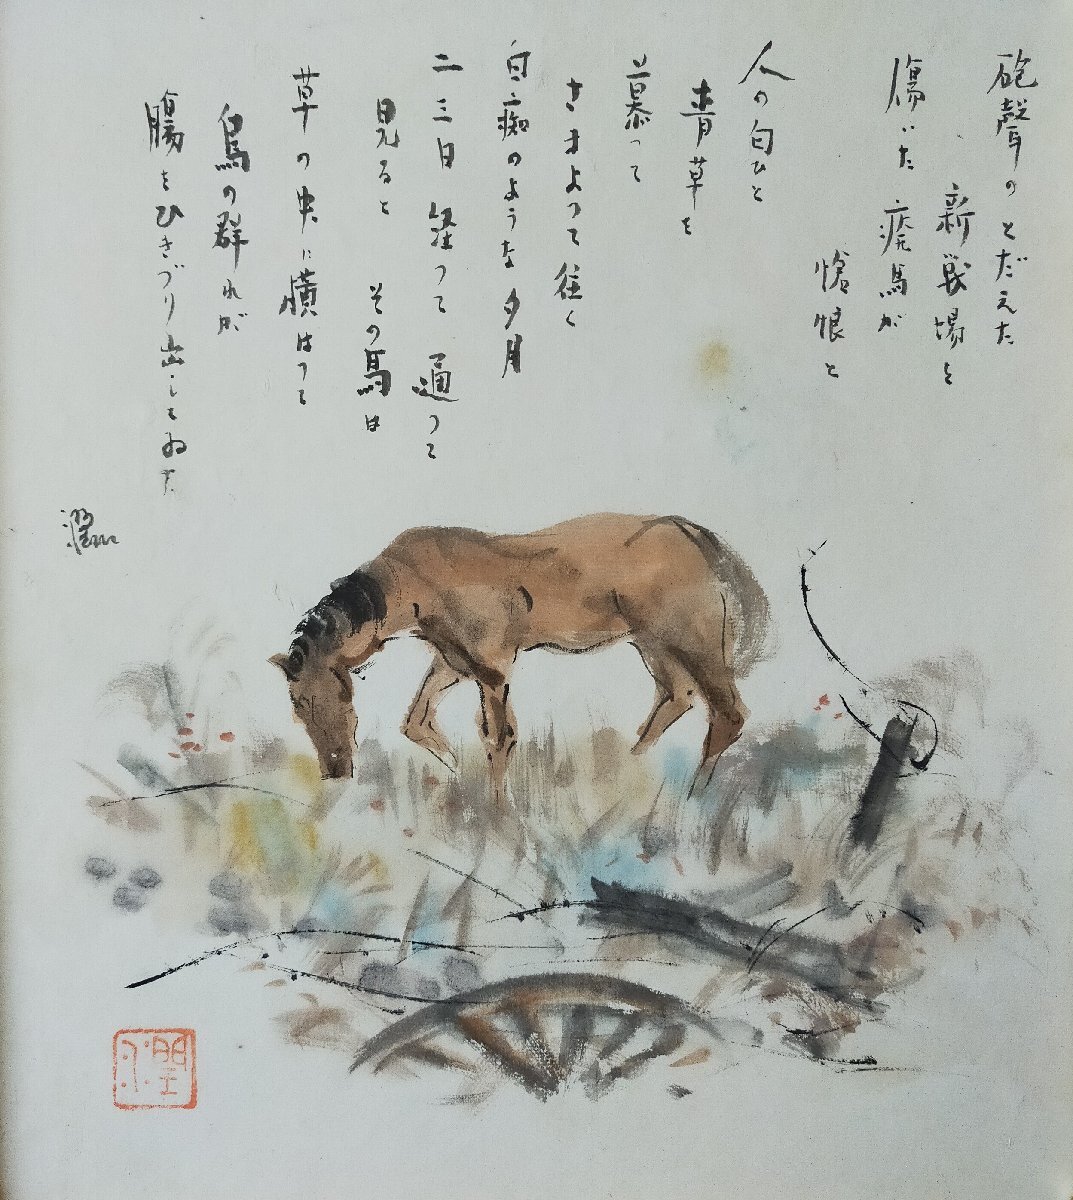 砲聲のとだえた
新戦場を
傷いた 癈馬が
愴恨と
人の匂ひと
青草を
慕って
さまよって往く
白痴のような夕月
二三日 経って 通って
見ると その馬は
草の央に横はって
烏の群れが
腸をひきづり出してゐた